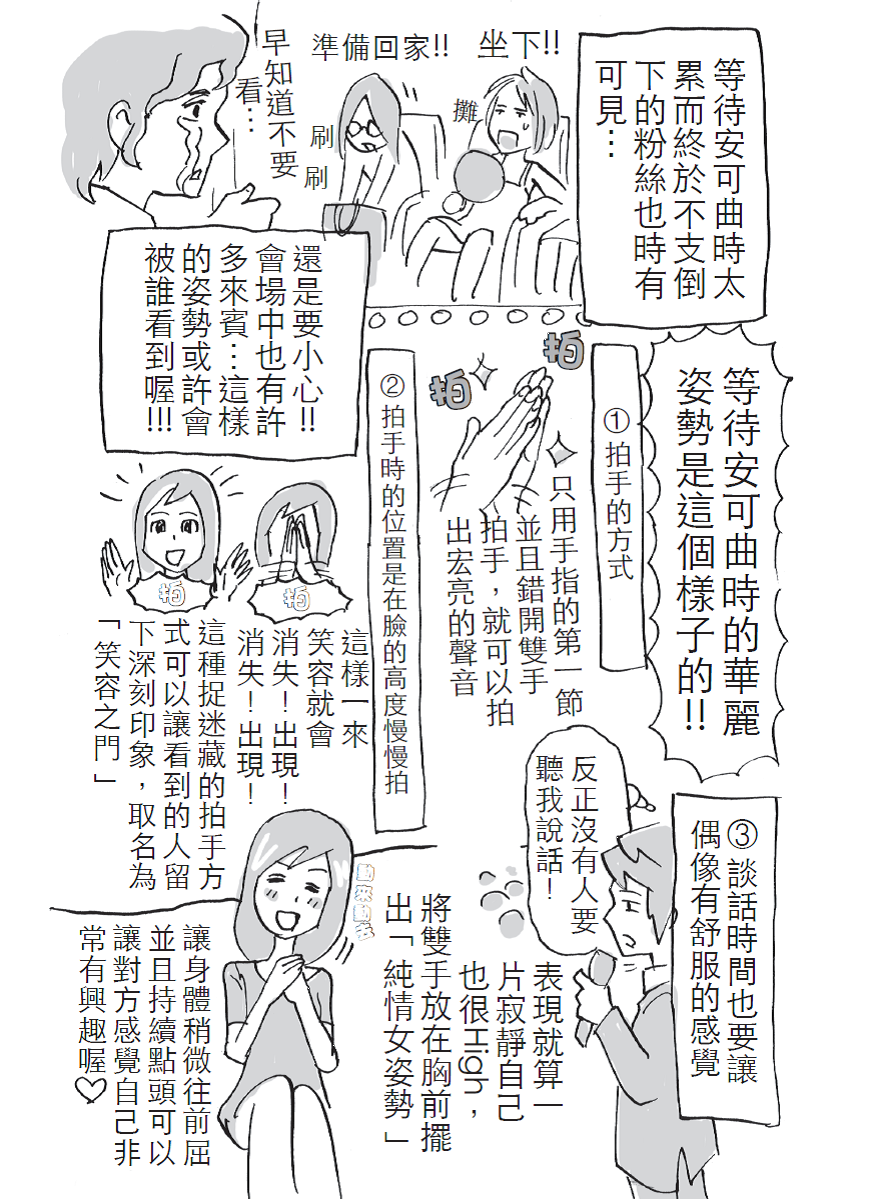 等待安可曲時太
累而終於不支倒
下的粉絲也時有
可見…
坐下!!
攤
準備回家!!
刷
刷
早知道不要
看…
還是要小心!!
會場中也有許
多來賓…這樣
的姿勢或許會
被誰看到喔!!!
等待安可曲時的華麗
姿勢是這個樣子的!!
①拍手的方式
拍
拍
只用手指的第一節
並且錯開雙手
拍手，就可以拍
出宏亮的聲音
②拍手時的位置是在臉的高度慢慢拍
拍
拍
這樣一來
笑容就會
消失！出現！
消失！出現！
這種捉迷藏的拍手方
式可以讓看到的人留
下深刻印象，取名為
「笑容之門」
③談話時間也要讓
偶像有舒服的感覺
反正沒有人要
聽我說話！
表現就算一
片寂靜自己
也很High，
將雙手放在胸前擺
出「純情女姿勢」
動來動去
讓身體稍微往前屈
並且持續點頭可以
讓對方感覺自己非
常有興趣喔♡